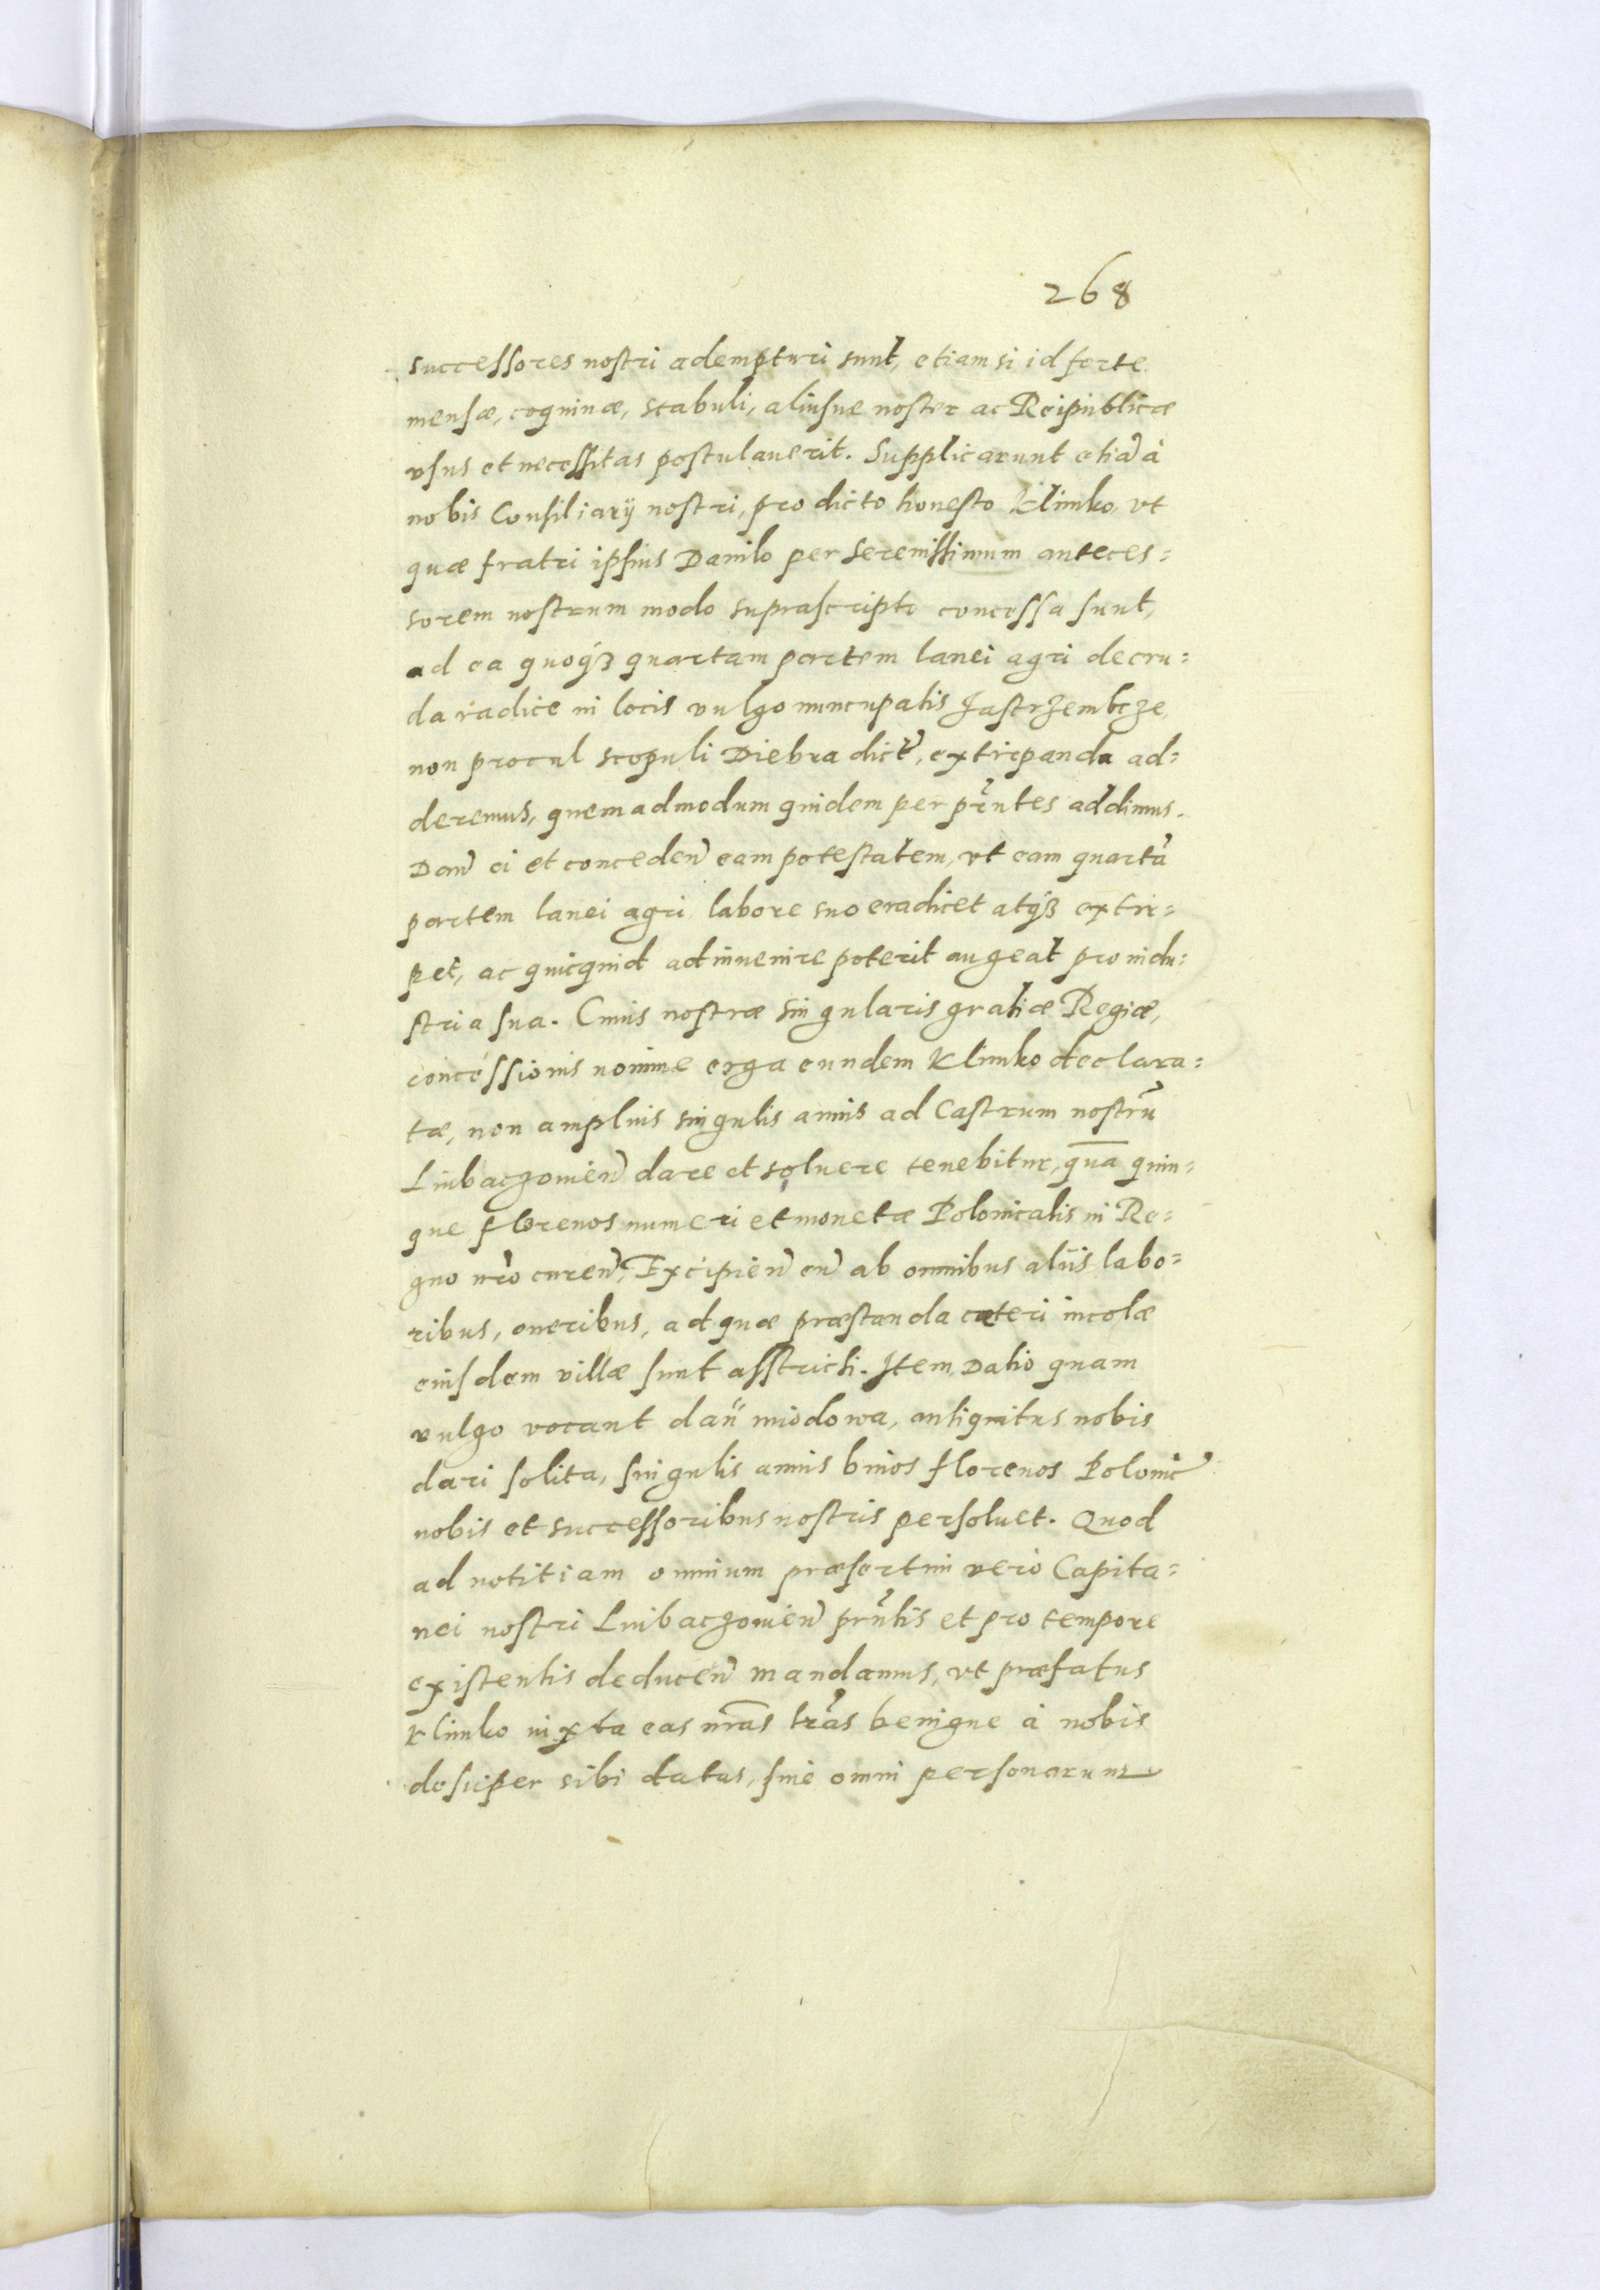 268
successores nostri adempturi sunt, etiam si id forte
mensæ, coquinæ, stabuli, aliusue noster ac Reipublicæ
vsus et necessitas postulauerit. Supplicarunt etiã à
nobis Consiliarij nostri, pro dicto honesto Klimko, vt
quæ fratri ipsius Danilo per Serenissimum anteces=
sorem nostrum modo suprascripto concessa sunt,
ad ea quoqз quartam partem lanei agri de cru=
da radice in locis vulgo nuncupatis Jastrzembcze,
non procul scopuli Diebra dict̃, extirpanda ad=
deremus, quemadmodum quidem per pr̃ntes addimus.
Dañ ei et conceden̄ eam potestatem, vt eam quartã
partem lanei agri labore suo eradicet atqз extir=
pet, ac quicquid adinuenire poterit augeat pro indu=
stria sua. Cuius nostræ singularis gratiæ Regiæ,
concessionis nomine erga eundem Klimko declara=
tæ, non amplius singulis annis ad Castrum nostrũ
Liubaczouień dare et soluere tenebitur, qua̅ quin=
que florenos numeri et monetæ Polonicalis in Re=
gno nr̃o curen̄, Excipien̄ eũ ab omnibus aliis labo=
ribus, oneribus, ad quæ præstanda cæteri incolæ
eiusdem villæ sunt asstricti. Item Datio quam
vulgo vocant dań miodowa, antiquitus nobis
dari solita, singulis annis binos florenos Polonic̃
nobis et successoribus nostris persoluet. Quod
ad notitiam omnium præsertim vero Capita=
nei nostri Liubaczouien̄ pr̃ntis et pro tempore
existentis deducen̄ mandamus, vt præfatus
Klimko iuxta eas nr̃as lr̃as benigne à nobis
desuper sibi datas, sine omni personarum